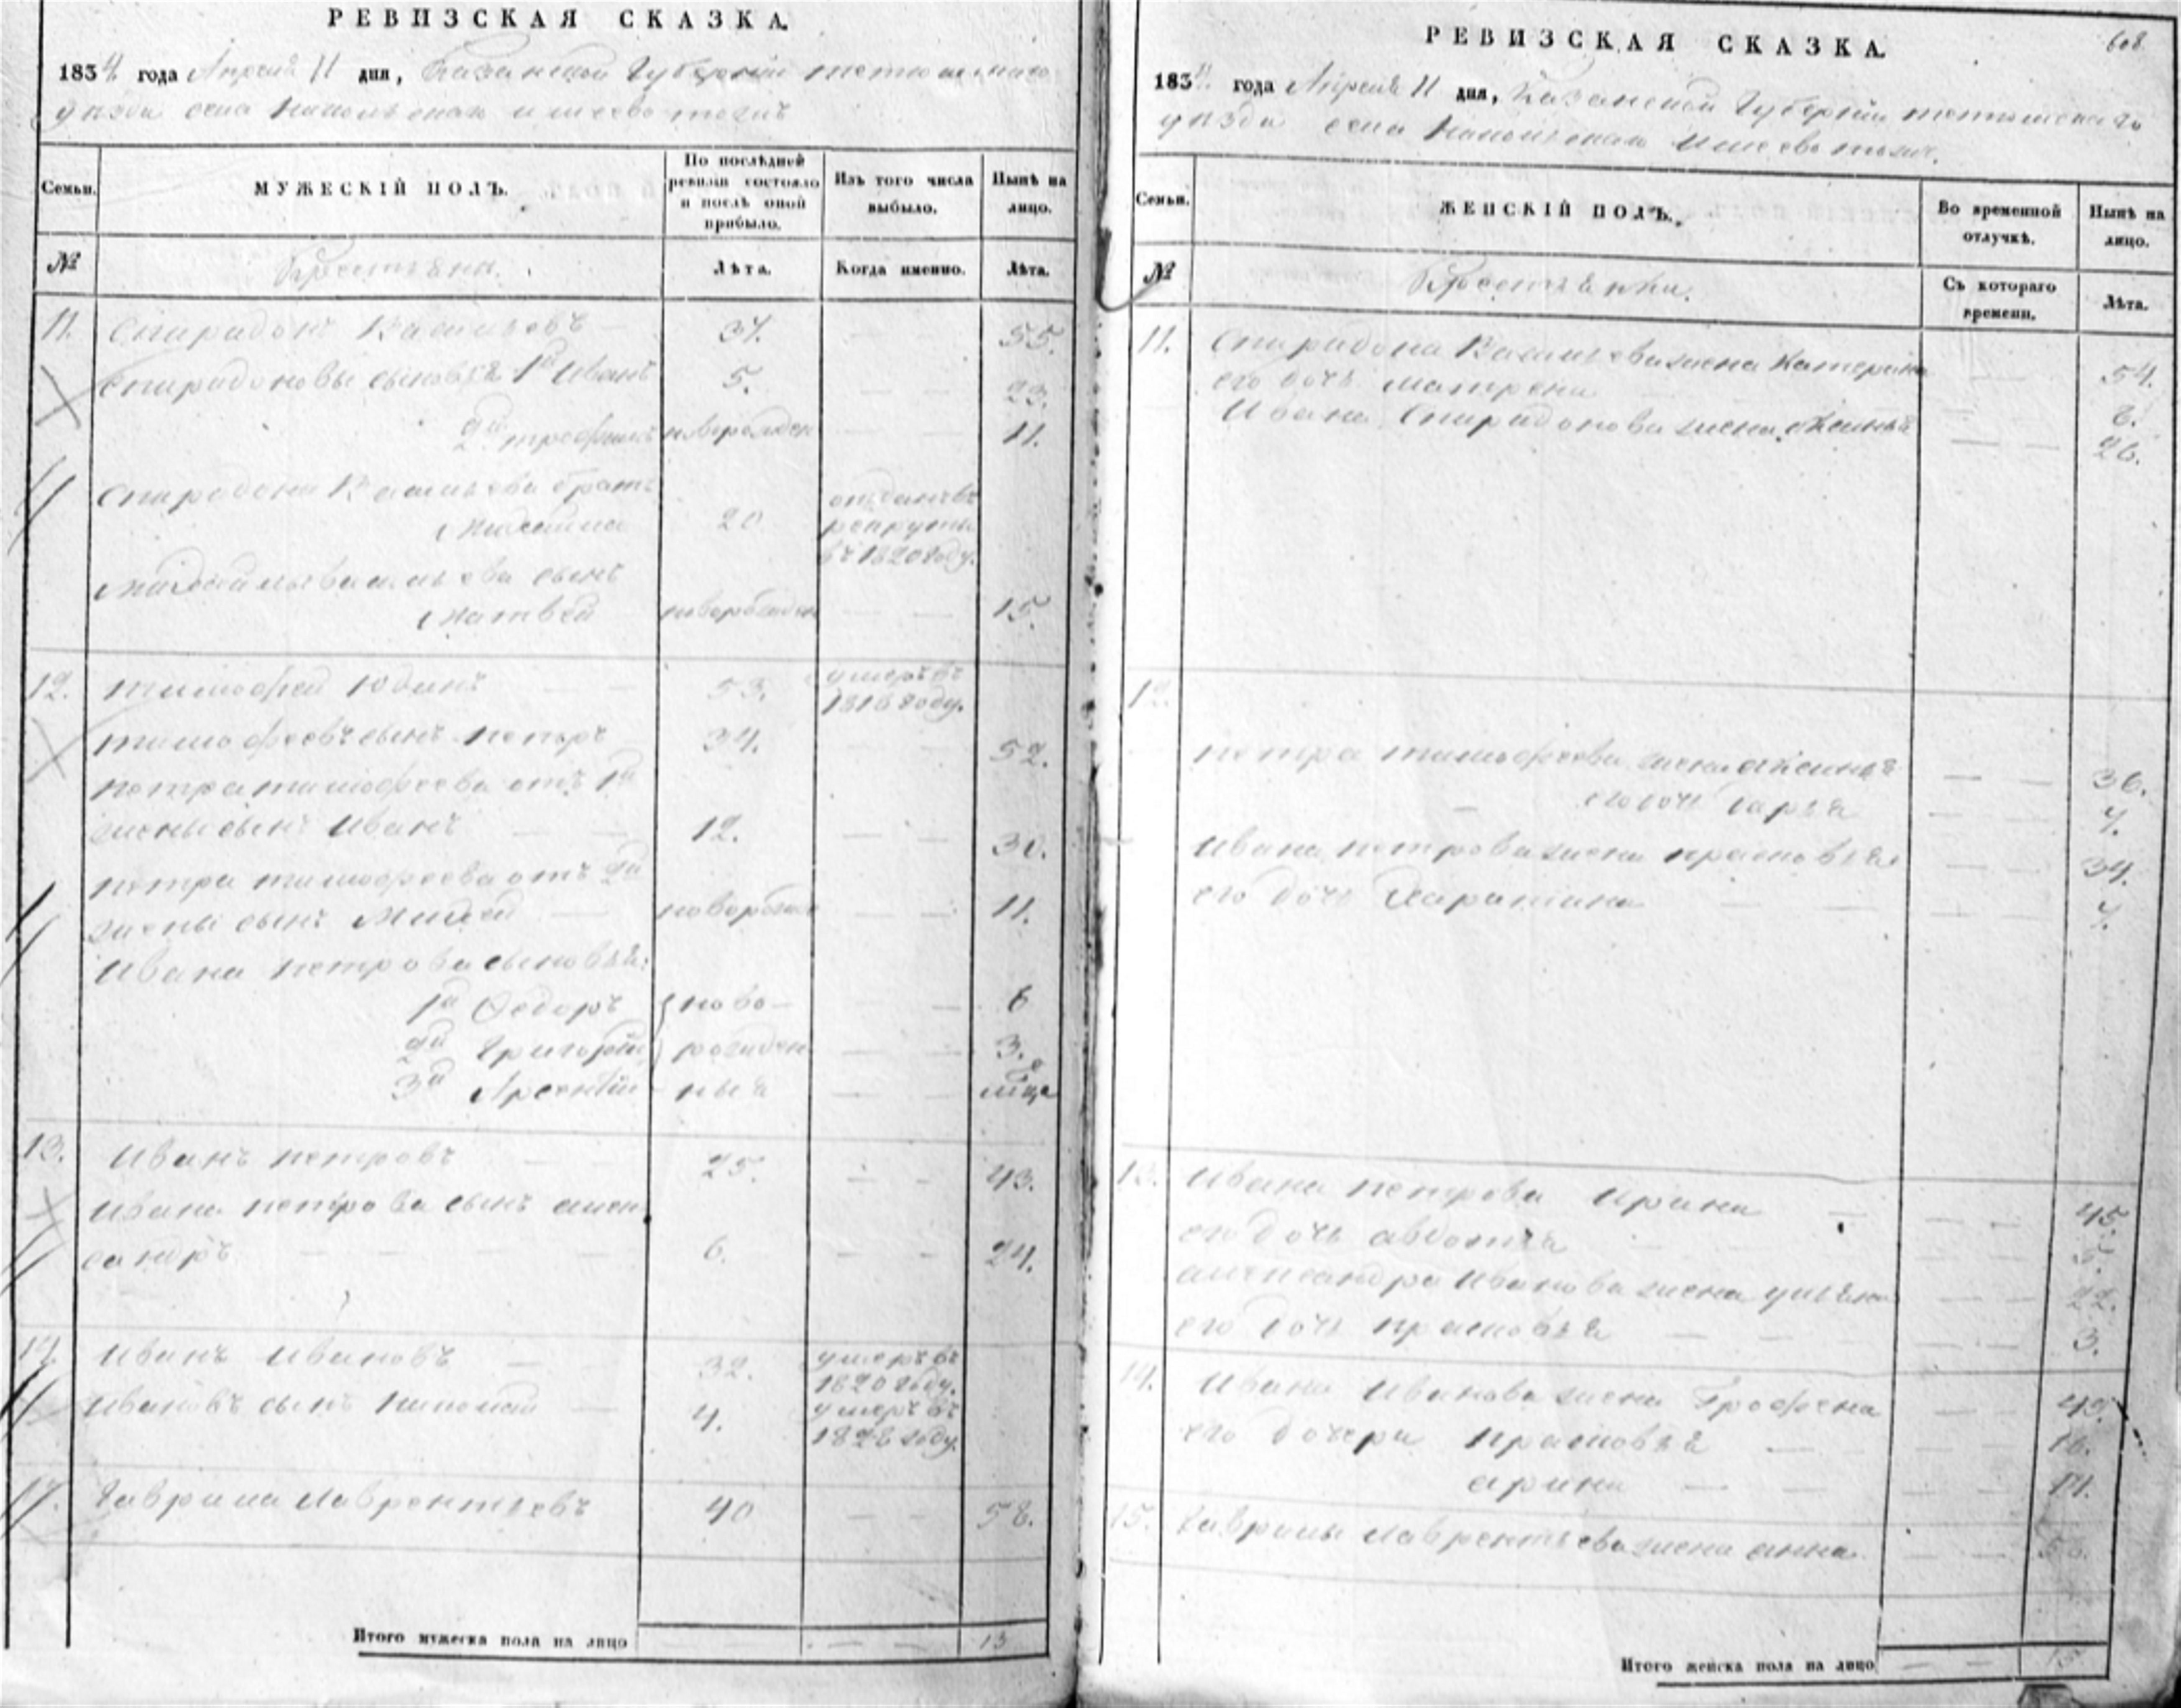 РЕВИЗСКАЯ СКАЗКА.
1834 года Апреля 11 дня, Казанской Губернiи тетюшскаго
уѣзда села Никольскаго
Семьи.
МУЖЕСКIЙ ПОЛЪ.
По послѣдней ревизiи состояло и послѣ оной прибыло.
Изъ того числа выбыло.
Нынѣ на лицо.
№
Крестьяне.
Лѣта.
Когда именно.
Лѣта.
11. Спиридонъ Васильевъ 37. 55.
Спиридоновы сыновья 1й Иванъ 5. 23.
2й трофимъ новорожден 11.
Спиридона Васильева братъ
Михайла 20 отданъ въ рекруты въ 1820 году.
Михайлы васильева сынъ
Матвей новорожден 15.
12. тимофей Юдинъ 53. умеръ въ 1816 году.
тимофеевъ сынъ петръ 34. 52.
петра тимофеева отъ 1й
жены сынъ Иванъ 12. 30.
петра тимофеева отъ 2й
жены сынъ Михей новорожде 11.
Ивана петрова сыновья:
1й Федоръ ново- 6
2й Григорiй рожден 3.
3й Арсентiй ныя мца
13. Иванъ петровъ 25. 43.
Ивана петрова сынъ алек
сандръ 6. 24.
14. Иванъ Ивановъ 32. умеръ въ 1820 году.
Ивановъ сынъ Николай 4. умеръ въ 1828 году.
Гаврила Лаврентьевъ 40 58.
Итого мужеска пола на лицо 13
РЕВИЗСКАЯ СКАЗКА.
608
1834. года Апреля 11 дня, Казанской Губернiи тетюшскаго
уѣзда села Никольскаго
Семьи.
ЖЕНСКIЙ ПОЛЪ.
Во временной отлучкѣ.
Нынѣ на лицо.
№
Крестьянки.
Съ котораго времени.
Лѣта.
11. Спиридона Васильева жена Катерина 54.
его дочь матрена 8.
Ивана Спиридонова жена Аксинья 26.
12.
петра тимофеева жена аксинья 36.
его дочь дарья 7.
Ивана петрова жена прасковья 34.
его дочь 7.
13. Ивана петрова Ирина 45.
его дочь авдотья 5.
александра Иванова жена ульяна 22.
его дочь прасковья 3.
14. Ивана Иванова жена Грофена 49.
его дочери прасковья 16.
арина 14.
15. Гаврилы Лаврентьева жена анна.
Итого женска пола на лицо